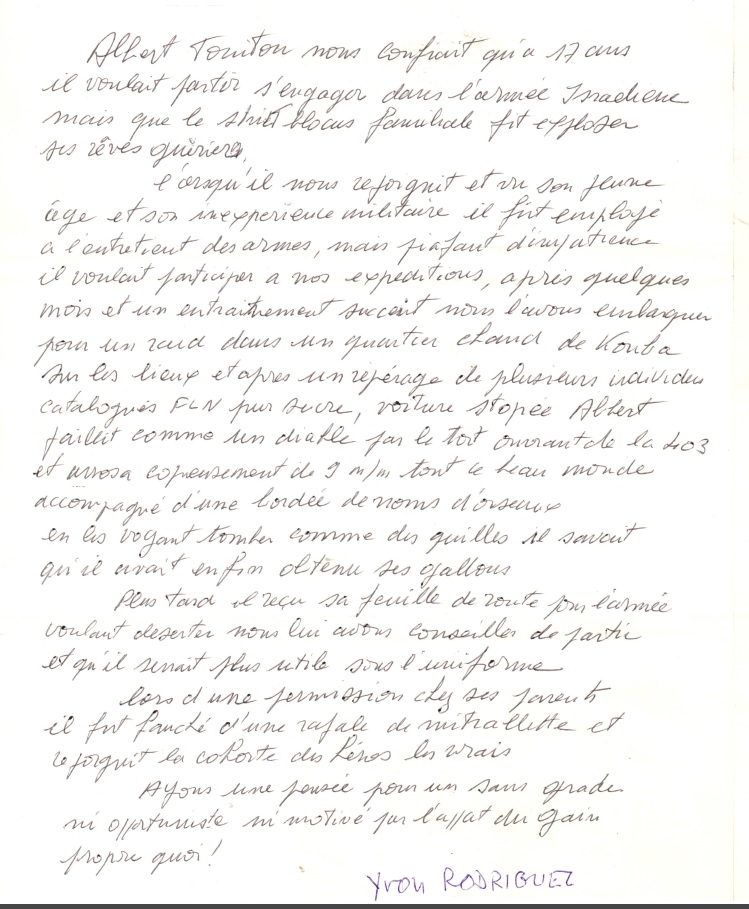 Albert Touitou nous confiait qu'a 17 ans
il voulait partir s'engager dans l'armée Israeliene
mais que le strict blocus familiale fit exploser
ses rêves guériers,
lorsqu'il nous rejorgnit et vu son jeune
âge et son inexperience militaire il fut employé
a l'entretient des armes, mais piafant d'impatience
il voulait participer a nos expeditions, après quelques
mois et un entraithement succint nous l'avons embarquer
pour un raid dans un quartier chaud de Kouba
sur les lieux et apres un repérage de plusieurs individus
catalogués FLN pur sucre, voiture stopée Albert
jaillit comme un diable par le toit ouvrant de la 403
et arrosa copieusement de 9 m/m tout ce beau monde
accompagné d'une bordée de noms d'oiseaux
en les voyant tomber comme des quilles il savait
qu'il avait enfin obtenu ses gallons
Plus tard il reçu sa feuille de route pour l'armée
voulant deserter nous lui avons conseiller de partir
et qu'il serait plus utile sous l'uniforme
lors d'une permission chez ses parents
il fut fauché d'une rafale de mitraillette et
rejorgnit la cohorte des héros les vrais
Ayons une pensée pour un sans grade
ni opportuniste ni motivé par l'appat du gain
propre quoi!
Yvon RODRIGUEZ